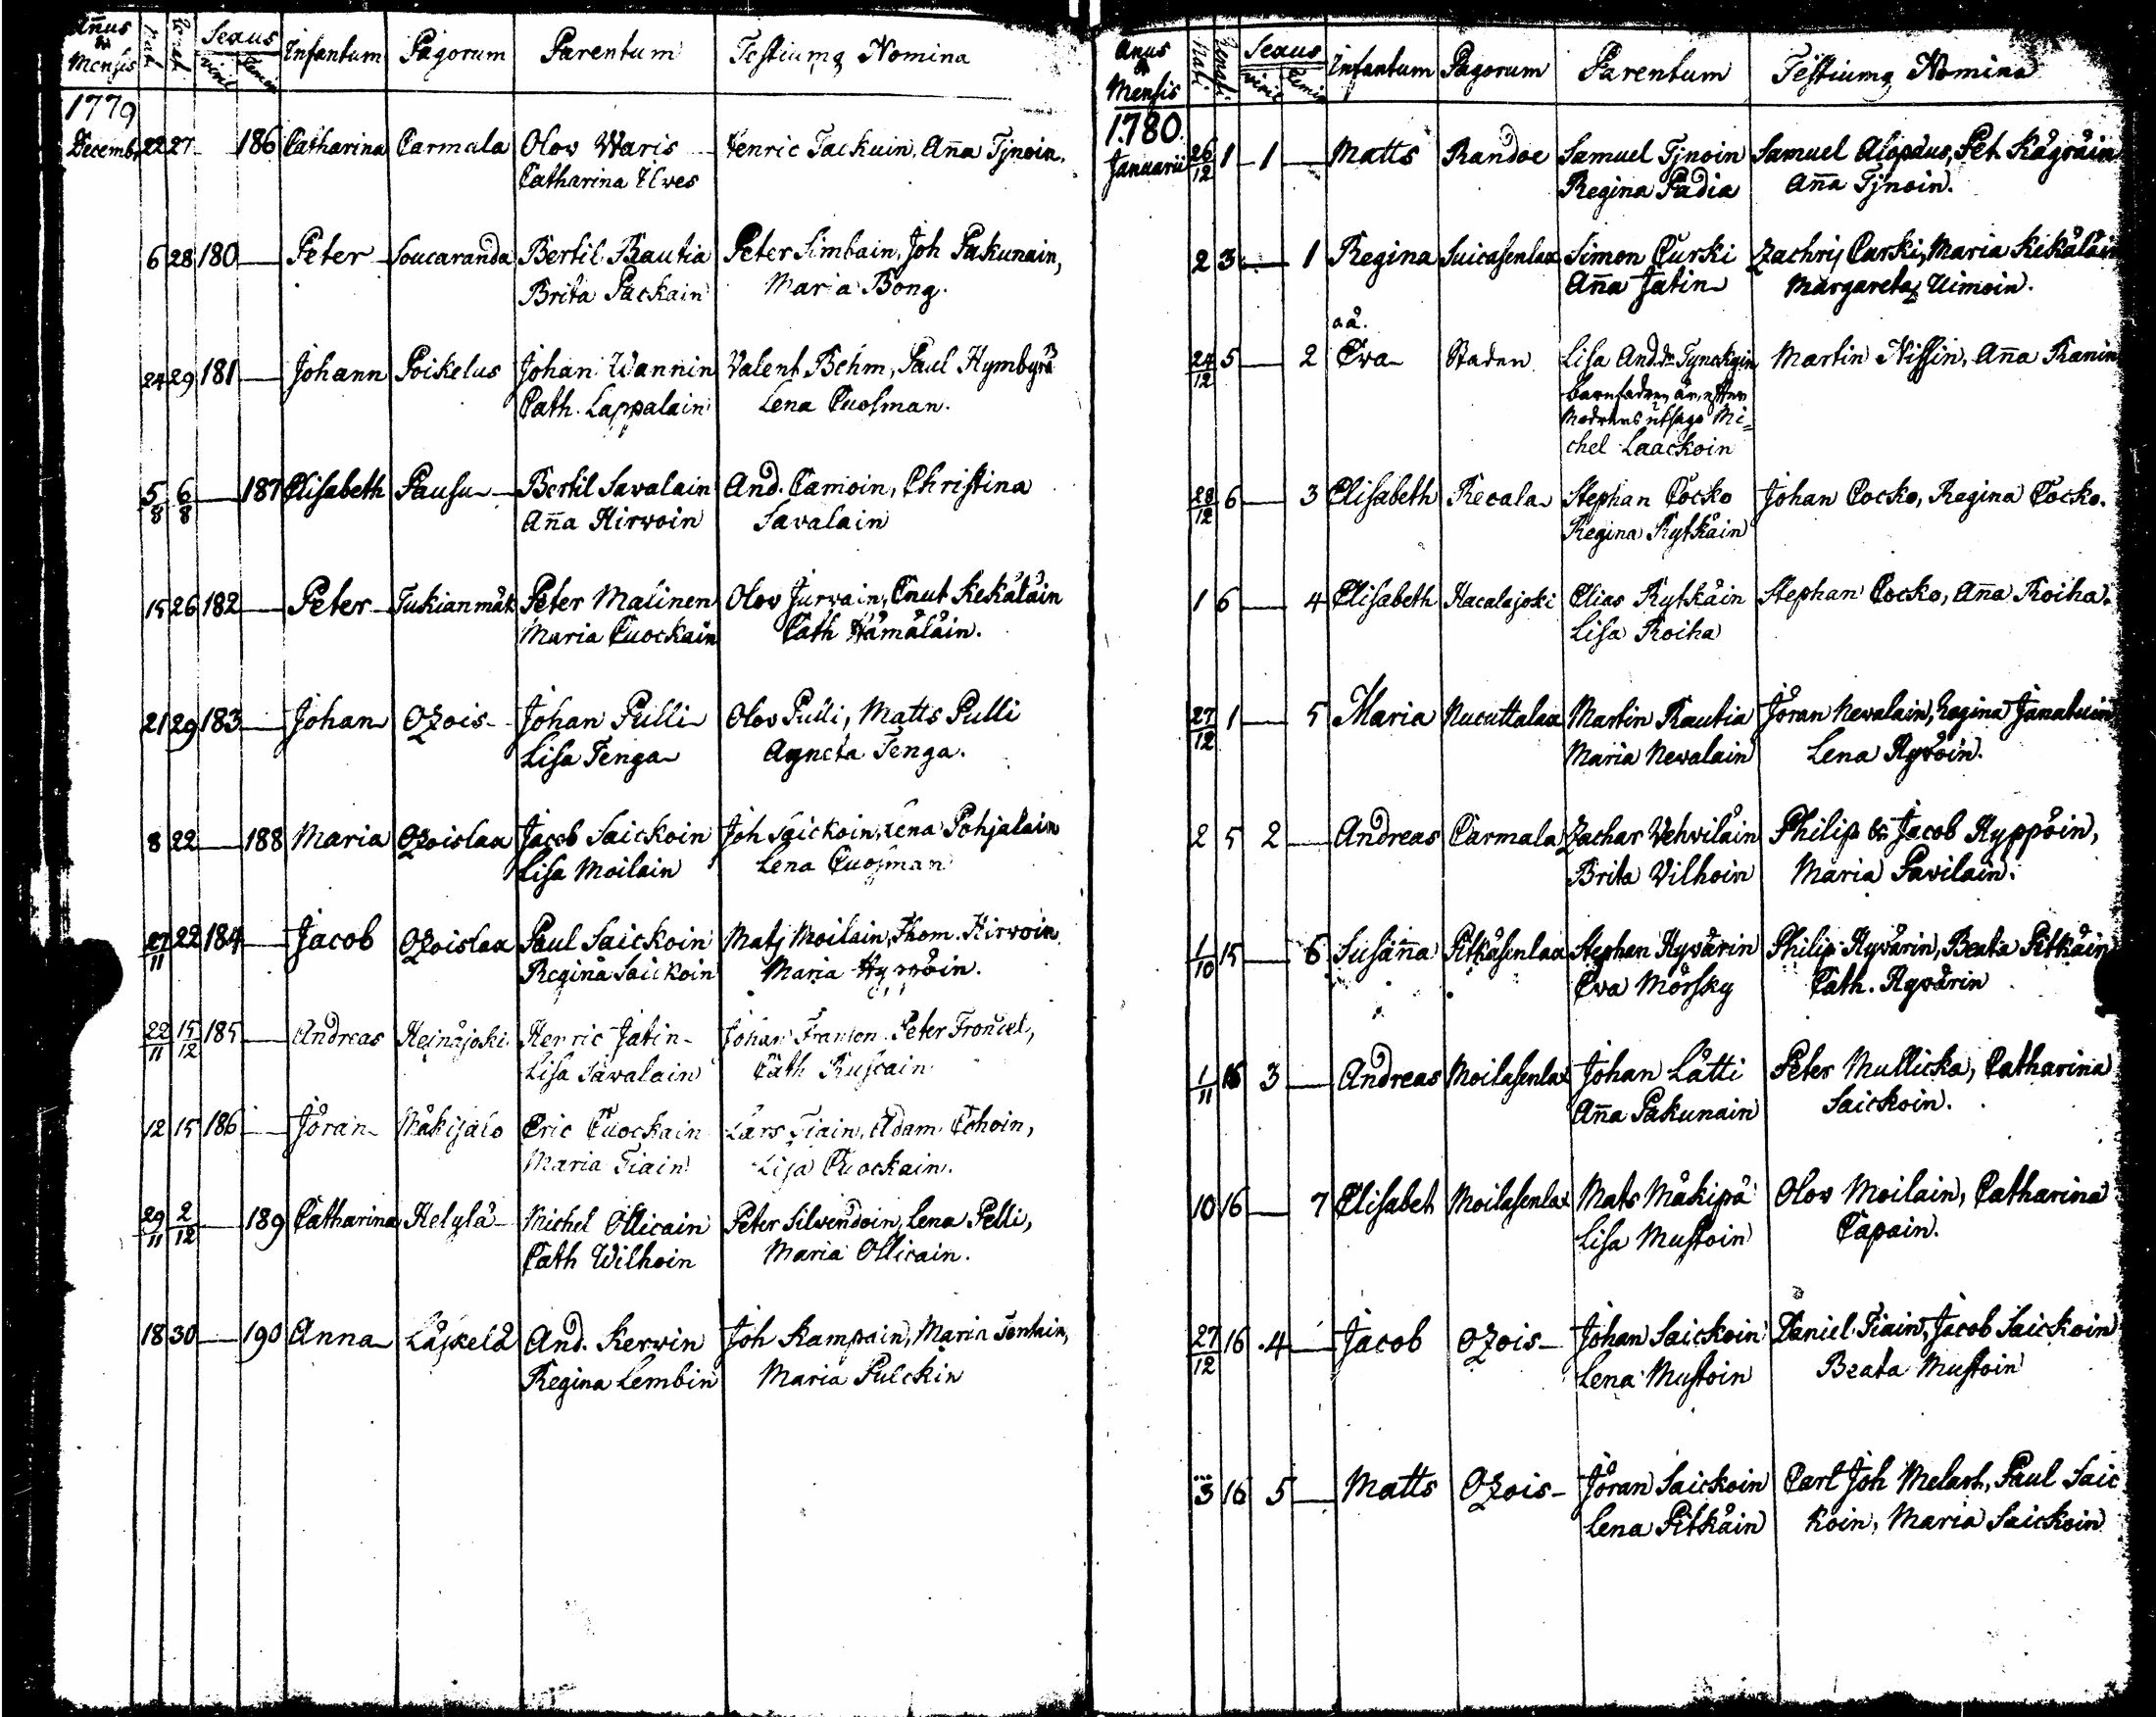 Añus & Mensis Nati Renati Sexus viril femin Infantum Pagorum Parentum Testiumq Nomina
1779
Decembr 22 27 186 Catharina Carmala Olov Waris Henric Tackuin, Aña Tÿnoin.
Catharina Ilves
6 28 180 Peter Soucaranda Bertil Rautia Peter Simbain, Joh Pakunain,
Brita Packain Maria Bong.
24 29 181 Johann Poikelus Johan Wannin Valent Behm, Paul Hymbyrä
Cath. Lappalain Lena Cuosman.
5/8 6/8 187 Elisabeth Pausu Bertil Savalain And. Camoin, Christina
Aña Hirvoin Savalain
15 26 182 Peter Tukianmäk Peter Malinen Olov Jurvain, Cnut Kekäläin
Maria Cuockain Cath Hämäläin.
21 29 183 Johan Ozois Johan Pulli Olov Pulli, Matts Pulli
Lisa Tenga Agneta Tenga.
8 22 188 Maria Ozoislax Jacob Saickoin Joh Saickoin, Lena Pohjalain
Lisa Moilain Lena Cuosman
27/11 22 184 Jacob Ozoislax Paul Saickoin Mats Moilain, Thom. Hirvoin
Regina Saickoin Maria Hyvöin.
22/11 15/12 185 Andreas Heinäjoki Henric Jatin Johan Peter
Lisa Savalain Cath Ruscain
12 15 186 Jöran Mäkisalo Eric Cuockain Lars Tiain, Adam Echoin,
Maria Tiain Lisa Cuockain.
29/11 2/12 189 Catharina Helylä Michel Ollicain Peter Silvendoin, Lena Pelli,
Cath Wilhoin Maria Ollicain.
18 30 190 Anna Läskelä And. Kervin Joh Kampain, Maria
Regina Lembin Maria Pulckin
Anus & Mensis Nati Renati Sexus viril femin Infantum Pagorum Parentum Testiumq Nomina
1780.
Januarii 26/12 1 1 Matts Randoe Samuel Tÿnoin Samuel Alopäus, Pet. Kägräin
Regina Padia Aña Tÿnoin.
2 3 1 Regina Suicasenlax Simon Curski Zachrij Curski, Maria Kekäläin
Aña Jatin Margareta Uimoin.
oä.
24/12 5 2 Eva Staden Lisa And.dr Martin Nissin, Aña Ranin
barnfadren är, efter
Modrens utsago Mi=
chel Laackoin
28/12 6 3 Elisabeth Recala Stephan Cocko Johan Cocko, Regina Cocko.
Regina Rytkäin
1 6 4 Elisabeth Hacalajoki Elias Rytkäin Stephan Cocko, Aña Roiha.
Lisa Roiha
27/12 1 5 Maria Nucuttalax Martin Rautia Jöran Nevalain, Regina Janatuin
Maria Nevalain Lena Hyvöin.
2 5 2 Andreas Carmala Zachar Vehviläin Philip & Jacob Hyppöin,
Brita Vilhoin Maria Pavilain.
1/10 15 6 Susañna Pitkäsenlax Stephan Hyvärin Philip Hyvärin, Beata Pitkäin
Eva Mörsky Cath. Hyvärin
1/11 16 3 Andreas Moilasenlax Johan Lätti Peter Mullicka, Catharina
Aña Pakunain Saickoin.
10 16 7 Elisabet Moilasenlax Mats Mäkipä Olov Moilain, Catharina
Lisa Mustoin Capain.
27/12 16 4 Jacob Ozois Johan Saickoin Daniel Tiain, Jacob Saickoin
Lena Mustoin Beata Mustoin
3 16 5 Matts Ozois Jöran Saickoin Carl Joh Melart, Paul Saic
Lena Pitkäin koin, Maria Saickoin